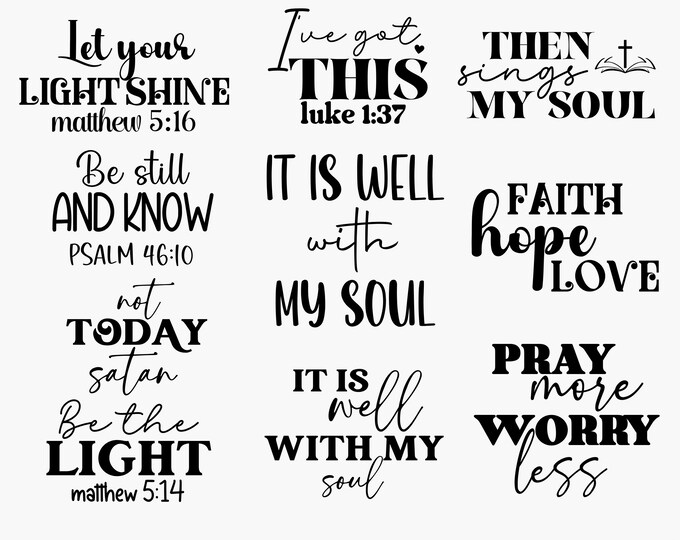 Let your
LIGHT SHINE
matthew 5:16
Be still
AND KNOW
PSALM 46:10
not
TODAY
satan
Be the
LIGHT
matthew 5:14
I've got
THIS
luke 1:37
IT IS WELL
with
MY SOUL
IT IS
well
WITH MY
soul
THEN
sings
MY SOUL
FAITH
hope
LOVE
PRAY
more
WORRY
less